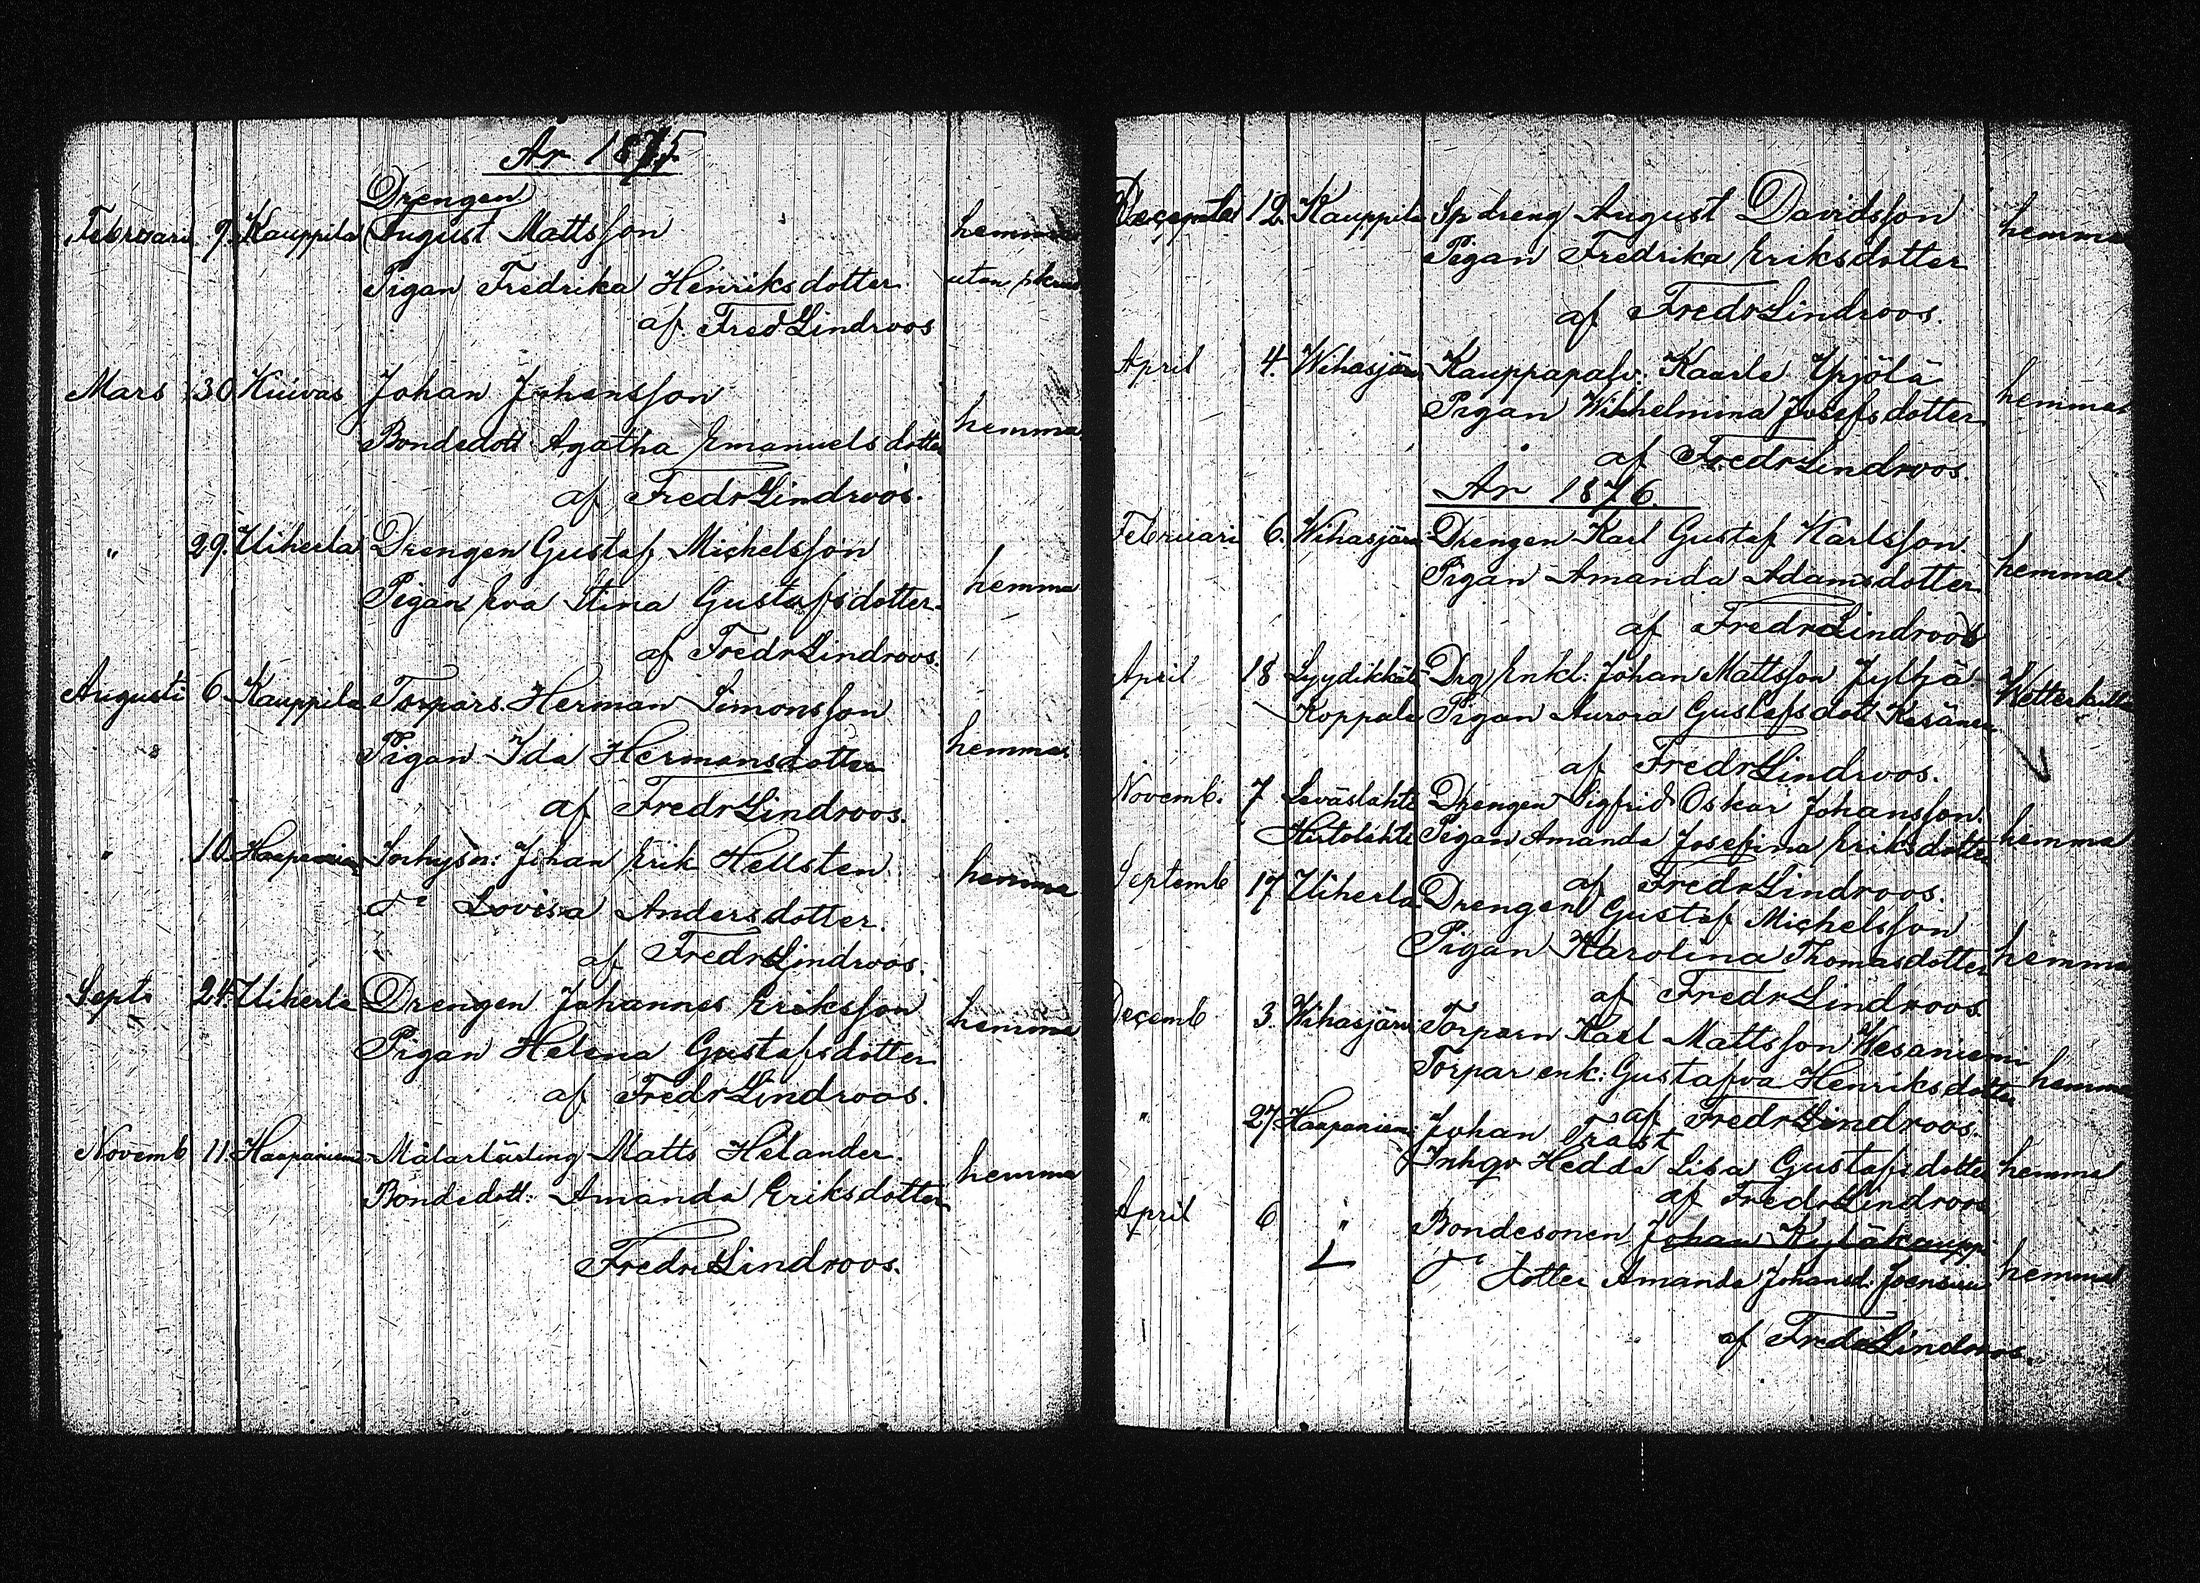 År 1875
Drengen
Februari 9. Kauppila August Mattsson hemma
Pigan Fredrika Henriksdotter utan
af Fred Lindroos
Mars 30 Kuivas Johan Johansson
Bondedott Agatha Emanuelsdotter hemma
af Fredr Lindroos.
" 29. Uiherla Drengen Gustaf Michelsson
Pigan Eva Stina Gustafsdotter hemma
af Fredr Lindroos.
Augusti 6 Kauppila Torpars. Herman Simonsson
Pigan Ida Hermansdotter hemma
af Fredr Lindroos.
" 10. Haapaniemi Johan Erik Hellsten
d:o Lovisa Andersdotter. hemma
af Fredr Lindroos.
Septb 24. Uiherla Drengen Johannes Eriksson
Pigan Helena Gustafsdotter hemma
af Fredr Lindroos.
Novemb 11. Haapaniemi Målarlärling Matts Helander.
Bondedott: Amanda Eriksdotter hemma
Fredr Lindroos.
December 12. Kauppila Sp dreng August Davidsson hemma
Pigan Fredrika Eriksdotter
af Fredr Lindroos.
April 4. Wihasjärvi Kauppapalv: Kaarle Yrjölä
Pigan Wilhelmina Josefsdotter hemma
af Fredr Lindroos.
År 1876.
Februari 6. Wihasjärvi Drengen Karl Gustaf Karlsson.
Pigan Amanda Adamsdotter hemma
af Fredr Lindroos
April 18 Lyydikkälä Drg Enkl: Johan Mattsson Jylhä
Koppala Pigan Aurora Gustafsdott Kesänen
af Fredr Lindroos.
Novemb. 7 Leväslahti Drengen Sigfrid Oskar Johansson.
Hietolahti Pigan Amanda Josefina Eriksdotter hemma
af Fredr Lindroos.
Septemb 17 Uiherla Drengen Gustaf Michelsson
Pigan Karolina Thomasdotter hemma
af Fredr Lindroos
Decemb 3. Wihasjärvi Torparn Karl Mattsson Wesaniemi
Torpar enk: Gustafva Henriksdotter hemma
af Fredr Lindroos.
" 27. Haapaniemi Johan Trast
Inhgr Hedda Lisa Gustafsdotter hemma
af Fredr Lindroos
April 6 " Bondesonen Johan Kyläkauppi
d:o dotter Amanda Johansd: Joensuu hemma
af Fredr Lindroos.